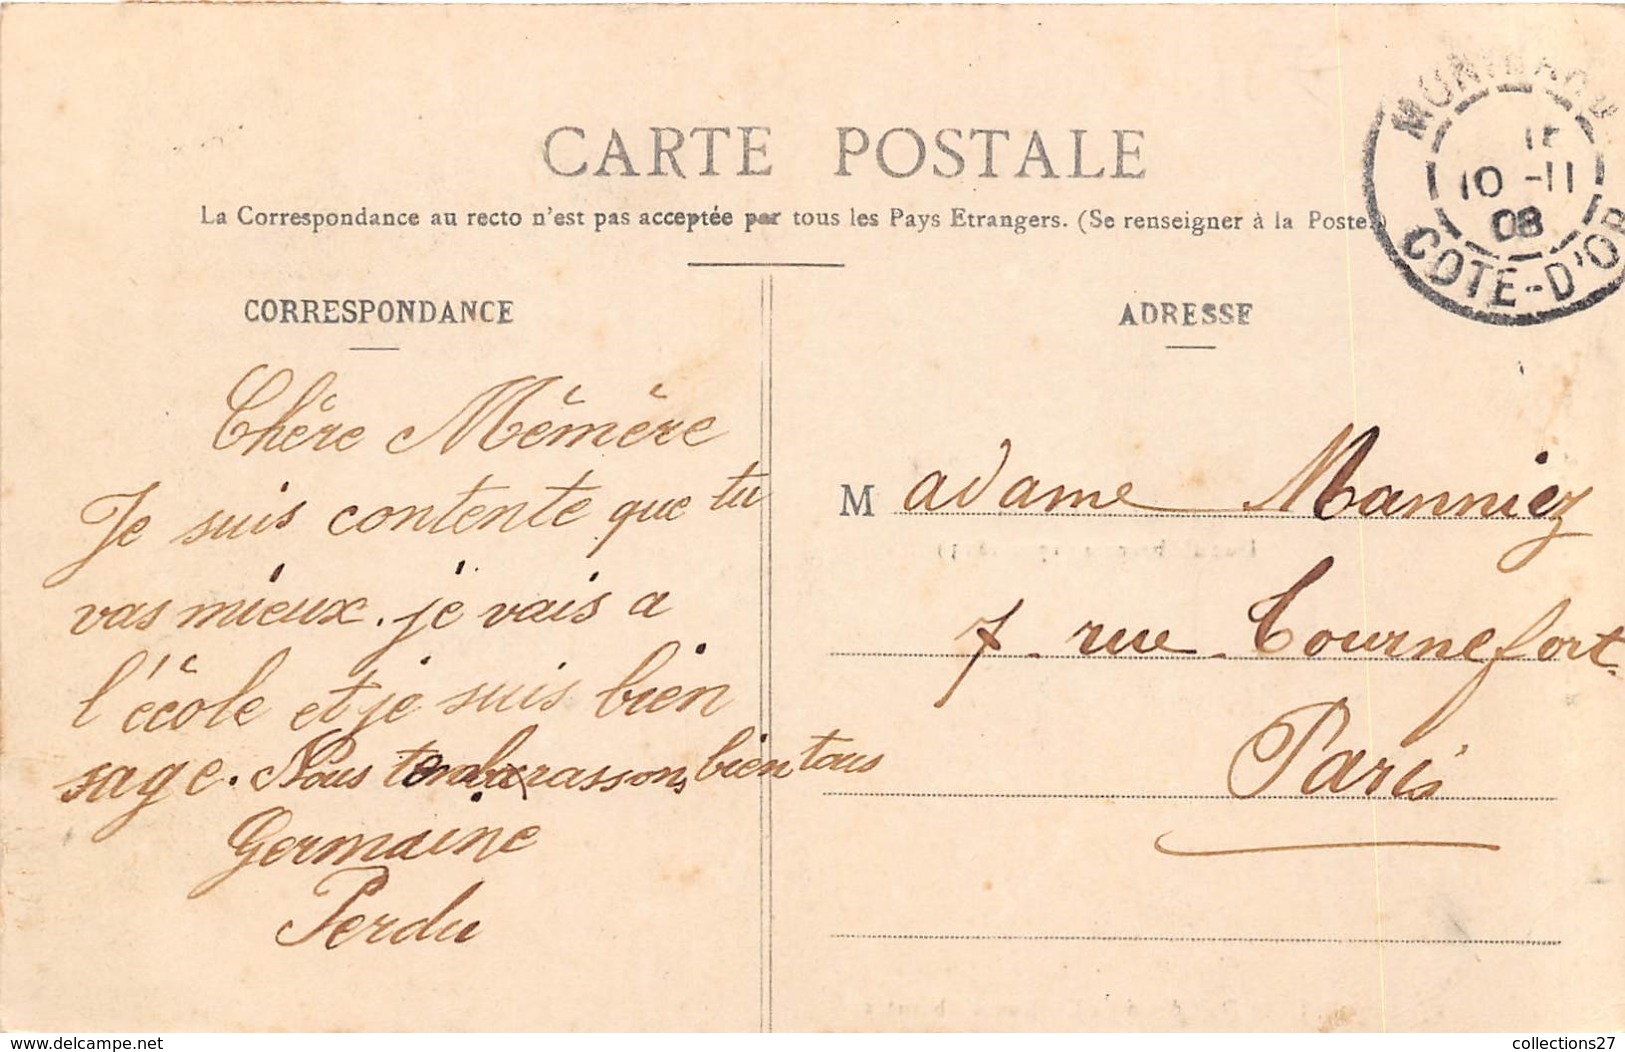 CARTE POSTALE
La Correspondance au recto n'est pas acceptée par tous les Pays Etrangers. (Se renseigner à la Poste.)
MONTBARD
15
10 -11
08
COTE-D'OR
CORRESPONDANCE
Chère Mémère
Je suis contente que tu
vas mieux. je vais a
l'école et je suis bien
sage. Nous tembrassons bien tous
Germaine
Perdu
ADRESSE
Madame Manniez
7 rue Tournefort
Paris
www.delcampe.net
collections27